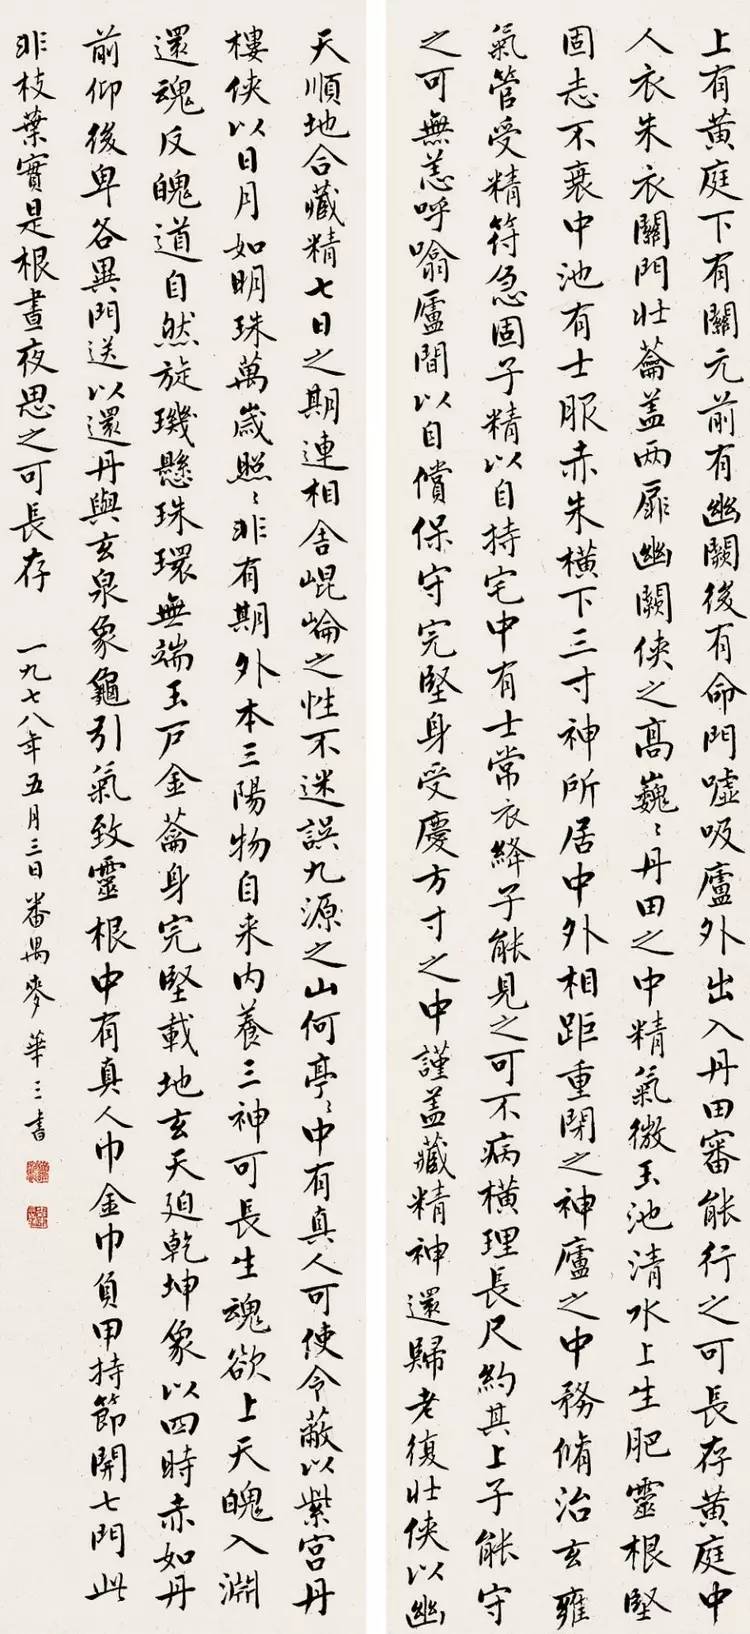 上有黃庭下有關元前有幽闕後有命門噓吸廬外出入丹田審能行之可長存黃庭中
人衣朱衣關門壯蘥盖两扉幽闕俠之高巍〻丹田之中精氣微玉池清水上生肥靈根堅
固志不衰中池有士服赤朱橫下三寸神所居中外相距重閉之神廬之中務脩治玄雍
氣管受精符急固子精以自持宅中有士常衣絳子能見之可不病橫理長尺約其上子能守
之可無恙呼噏廬間以自償保守完堅身受慶方寸之中謹盖藏精神還歸老復壯俠以幽
天順地合藏精七日之期連相舎崐崘之性不迷誤九源之山何亭〻中有真人可使令蔽以紫宮丹
樓俠以日月如明珠萬歲照〻非有期外本三陽物自来內養三神可長生魂欲上天魄入淵
還魂反魄道自然旋璣懸珠環無端玉戸金蘥身完堅載地玄天迫乾坤象以四時赤如丹
前仰後卑各異門送以還丹與玄泉象龜引氣致靈根中有真人巾金巾負甲持節開七門此
非枝葉實是根晝夜思之可長存 一九七八年五月三日番禺麥華三書